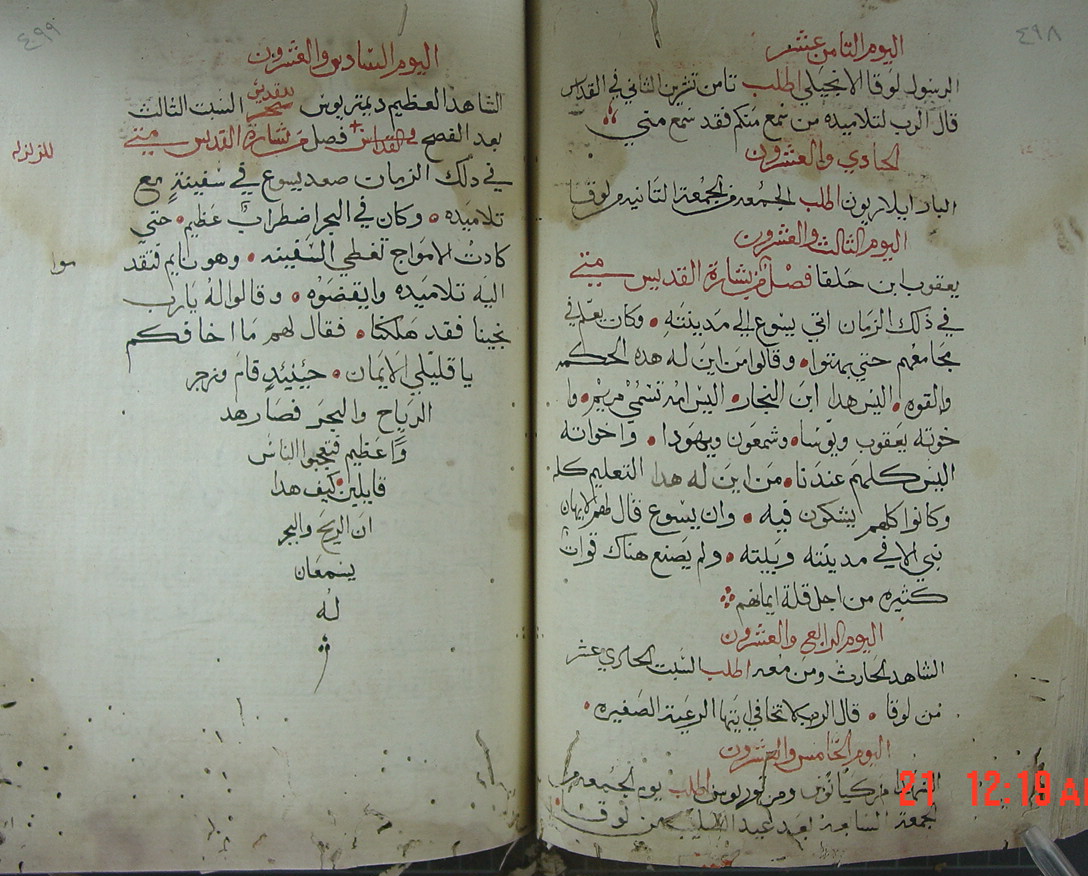 ٤٩٨
اليوم الثامن عشر
الرسول لوقا الانجيلي اطلب ثامن تشرين الثاني في القداس
قال الرب لتلاميذه من سمع منكم فقد سمع مني
الحادي والعشرون
البار ايلاريون اطلب الجمعه من الجمعة الثانيه من لوقا
اليوم الثالث والعشرون
يعقوب ابن حلفا فصل من بشارة القديس متي
في ذلك الزمان اتي يسوع الي مدينته • وكان يعلم في
مجامعهم حتي يبهتوا • وقالوا من اين له هذه الحكمه
والقوه • اليس هدا ابن النجار • اليس امه تسمي مريم • وا
خوته يعقوب ويوسا • وشمعون ويهودا • واخواته
اليس كلهم عندنا • من اين له هدا التعليم كله
وكانوا كلهم يشكون فيه • وان يسوع قال لهم لايهان
نبي الا في مدينته وبيته • ولم يصنع هناك قوات
كثيره من اجل قلة ايمانهم
اليوم الرابع والعشرون
الشاهد الحارث ومن معه اطلب السبت الحادي عشر
من لوقا • قال الرب لا تخافي ايتها الرعية الصغيره •
اليوم الخامس والعشرون
مركيانوس ومرتوريوس اطلب يوم الجمعه من
الجمعة السابعه بعد عيد الصليب من لوقا
21 12:19 AM
٤٩٩
اليوم السادس والعشرون
الشاهد العظيم ديمتريوس للقديس سحر السبت الثالث
بعد الفصح في القداس + فصل من بشارة القديس متي
للزلزله
في ذلك الزمان صعد يسوع في سفينةٍ مع
تلاميذه • وكان في البحر اضطرابٌ عظيم • حتي
كادت الامواج تغطي السفينه • وهو نايم فتقد
موا
اليه تلاميذه وايقضوه • وقالوا له يارب
نجينا فقد هلكنا • فقال لهم ما اخافكم
يا قليلي الايمان • حينيدٍ قام وزجر
الرياح والبحر فصار هد
وًا عظيم فتعجبوا الناس
قايلين • كيف هدا
ان الريح والبحر
يسمعان
له